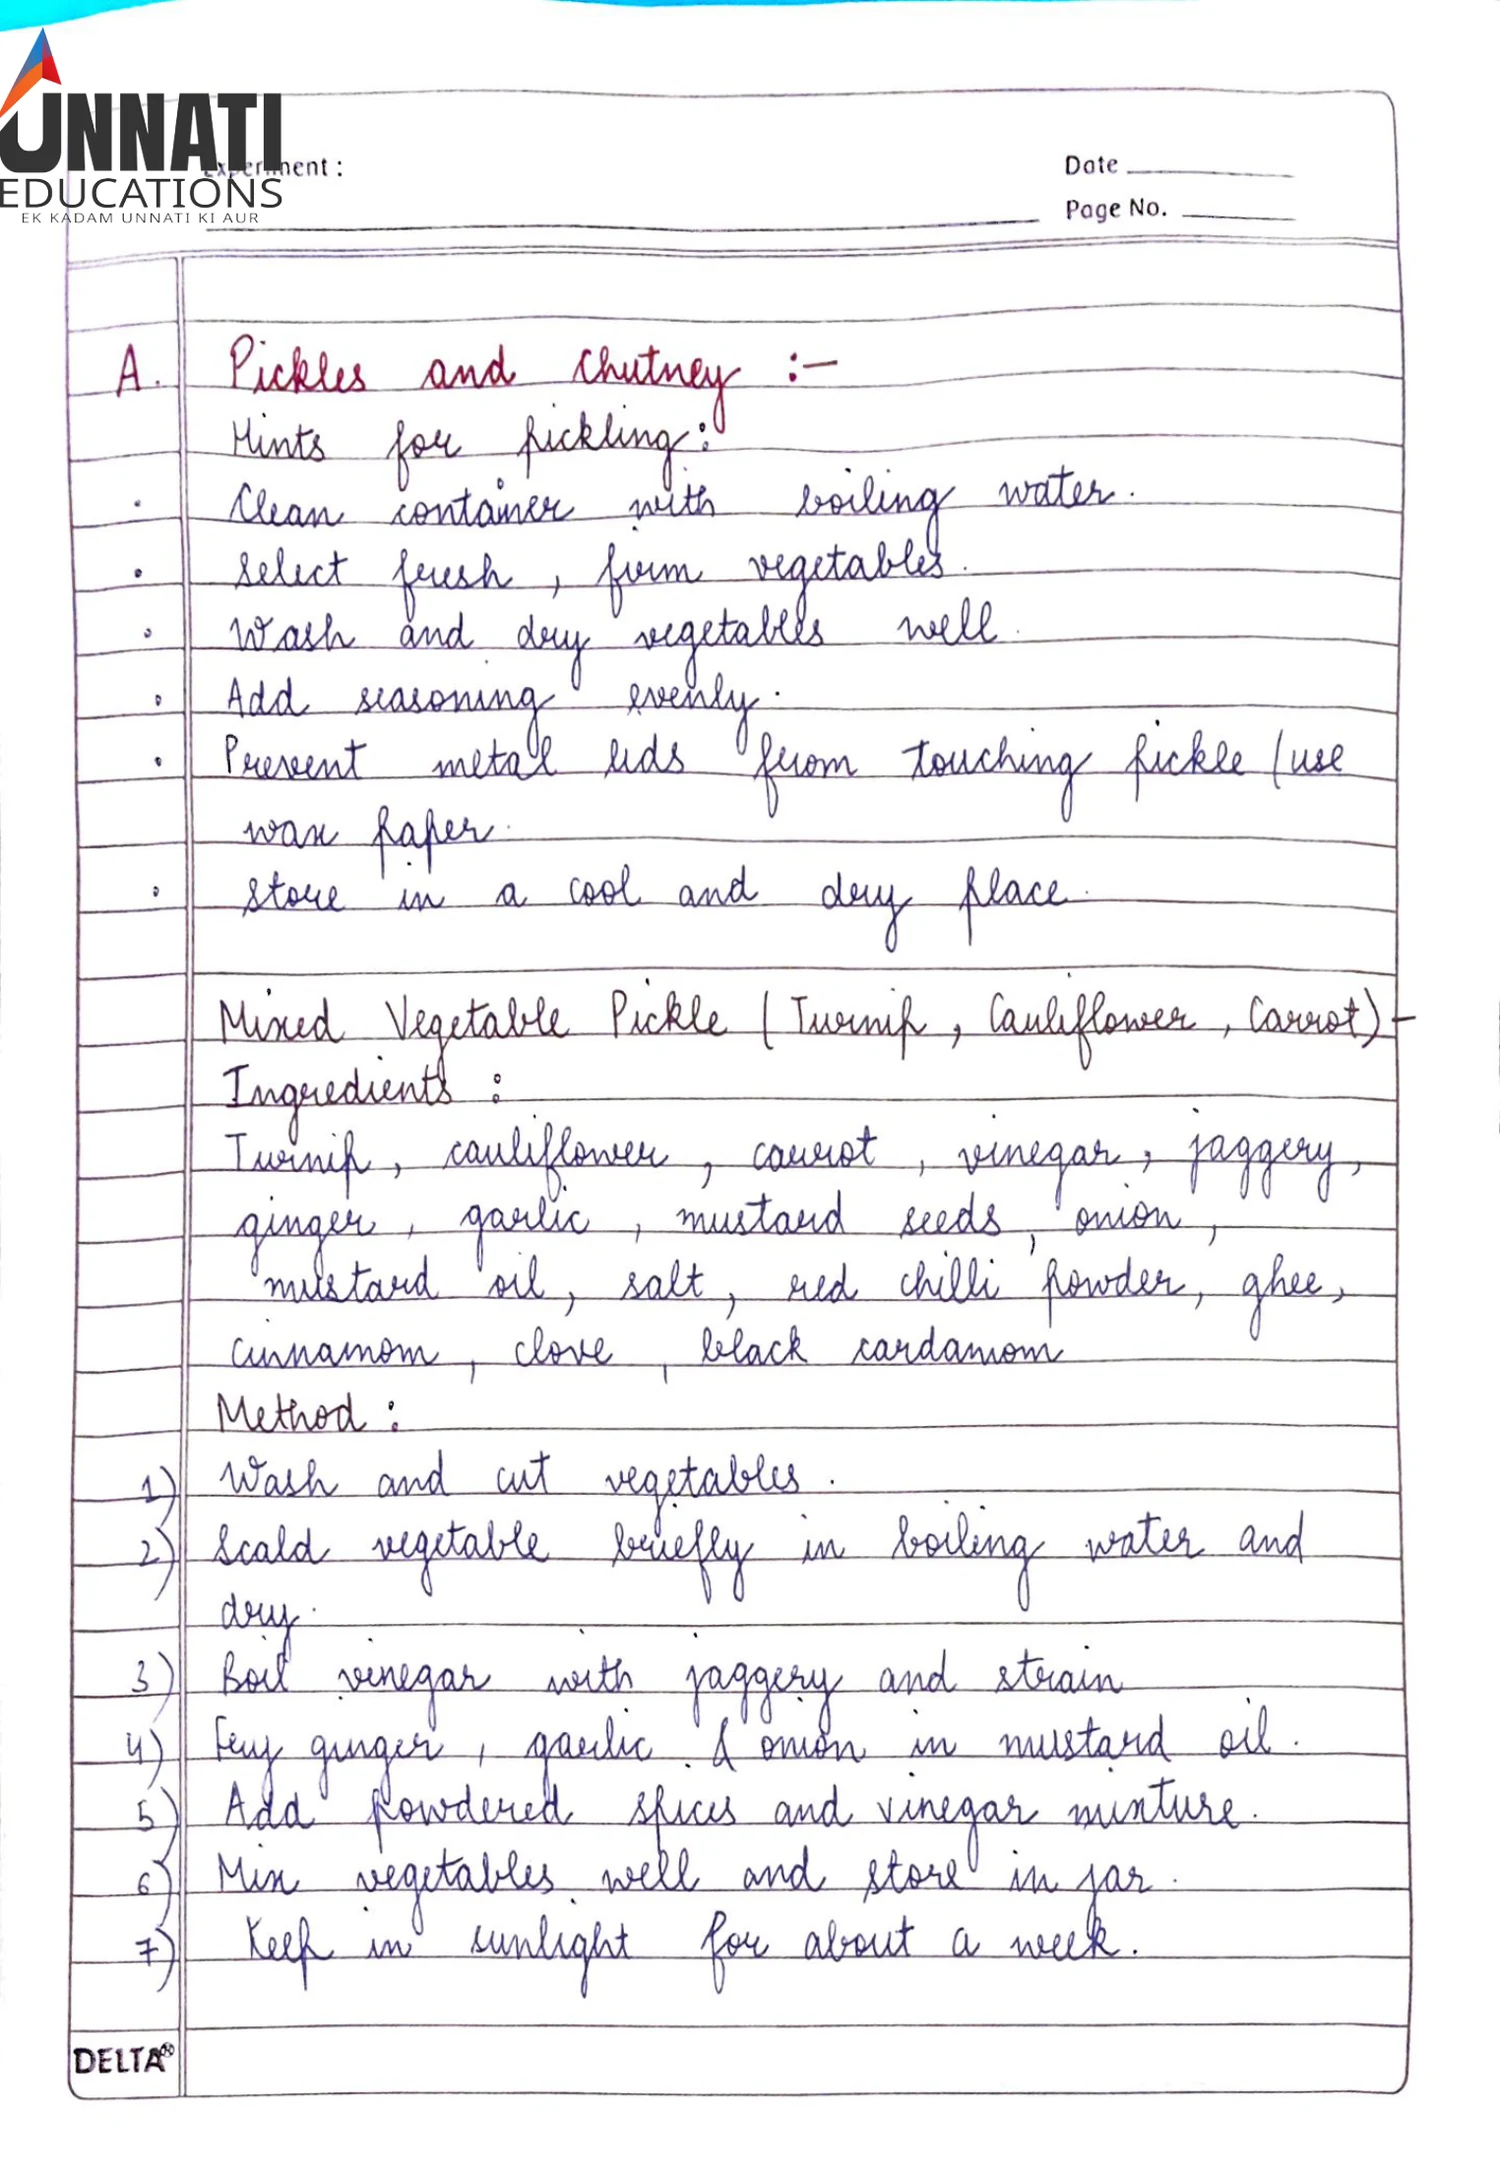 UNNATI
EDUCATIONS
EK KADAM UNNATI KI AUR
Experiment :
Date
Page No.
A. Pickles and Chutney :-
Hints for pickling:
• Clean container with boiling water.
• Select fresh, firm vegetables.
• Wash and dry vegetables well.
• Add seasoning evenly.
• Prevent metal lids from touching pickle (use
wax paper.
• Store in a cool and dry place.
Mixed Vegetable Pickle (Turnip, Cauliflower, Carrot) -
Ingredients :
Turnip, cauliflower, carrot, vinegar, jaggery,
ginger, garlic, mustard seeds, onion,
mustard oil, salt, red chilli powder, ghee,
cinnamom, clove, black cardamom
Method :
1) Wash and cut vegetables.
2) Scald vegetable briefly in boiling water and
dry.
3) Boil vinegar with jaggery and strain
4) Fry ginger, garlic & onion in mustard oil.
5) Add powdered spices and vinegar mixture.
6) Mix vegetables well and store in jar.
7) Keep in sunlight for about a week.
DELTA®